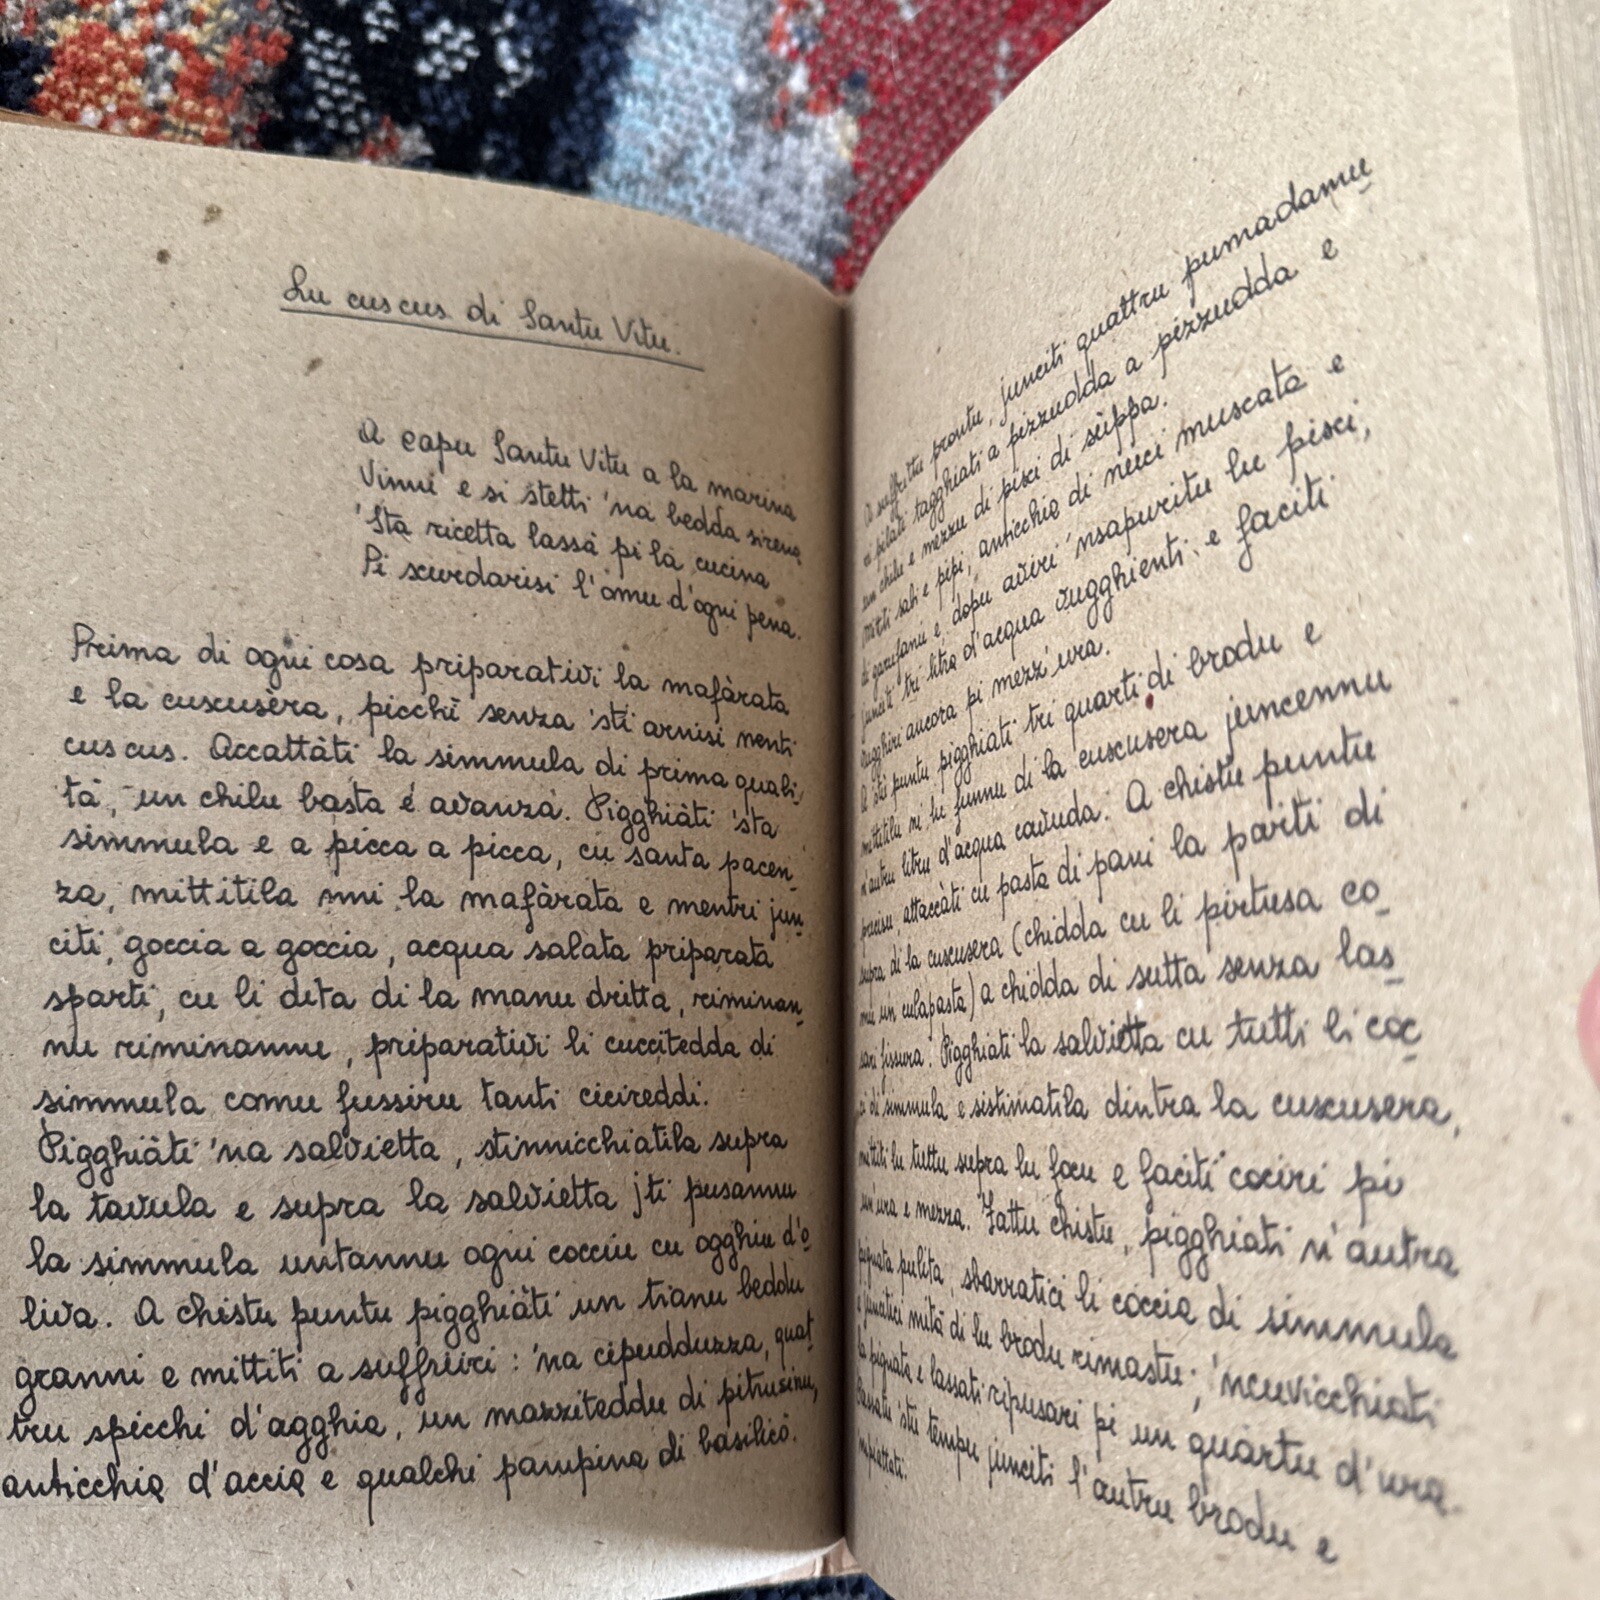 Lu cuscus di Santu Vitu.
A capu Santu Vitu a la marina
Vinni e si stetti 'na bedda sirena
'Sta ricetta lassà pi la cucina
Pi scurdarisi l'omu d'ogni pena.
Prima di ogni cosa priparativi la mafàrata
e la cuscusèra, picchì senza 'sti arnisi nenti
cuscus. Accattàti la simmula di prima quali
tà, un chilu basta e avanza. Pigghiàti 'sta
simmula e a picca a picca, cu santa pacen_
za, mittitila nni la mafàrata e mentri jun_
citi, goccia a goccia, acqua salata priparata
sparti, cu li dita di la manu dritta, riminan_
nu riminannu, priparativi li cuccitedda di
simmula comu fussiru tanti cicireddi.
Pigghiàti 'na salvietta, stinnicchiatila supra
la tavula e supra la salvietta jti pusannu
la simmula untannu ogni cocciu cu ogghiu d'o_
liva. A chistu puntu pigghiàti un tianu beddu
granni e mittiti a suffriiri: 'na cipudduzza, quat_
tru spicchi d'agghia, un mazziteddu di pitrusinu,
anticchia d'accia e qualchi pampina di basilicò.
A suffrittu prontu, junciti quattru pumadamu_
ri pilati tagghiati a pizzudda a pizzudda e
un chilu e menzu di pisci di suppa.
Mittiti sali e pipi, anticchia di nuci muscata e
di garofanu e, dopu aviri 'nsapuritu lu pisci,
junciti tri litra d'acqua vugghienti e faciti
vugghiri ancora pi mezz'ura.
A stu puntu pigghiati tri quarti di brodu e
mittitilu ni lu funnu di la cuscusera juncennu
n'autru litru d'acqua cavuda. A chistu puntu
precisu, attaccàti cu pasta di pani la parti di
supra di la cuscusera (chidda cu li pirtusa co_
mu un culapasta) a chidda di sutta senza las_
sari fissura. Pigghiati la salvietta cu tutti li coc_
ci di simmula e sistimatila dintra la cuscusera,
mittiti lu tuttu supra lu focu e faciti cociri pi
un'ura e mezza. Fattu chistu, pigghiati n'autra
pignata pulita, sbarratici li coccia di simmula
e junciti mità di lu brodu rimastu; 'ncuvicchiati
la pignata e lassati ripusari pi un quartu d'ura.
Passatu 'stu tempu junciti l'autru brodu e
mpiattati.